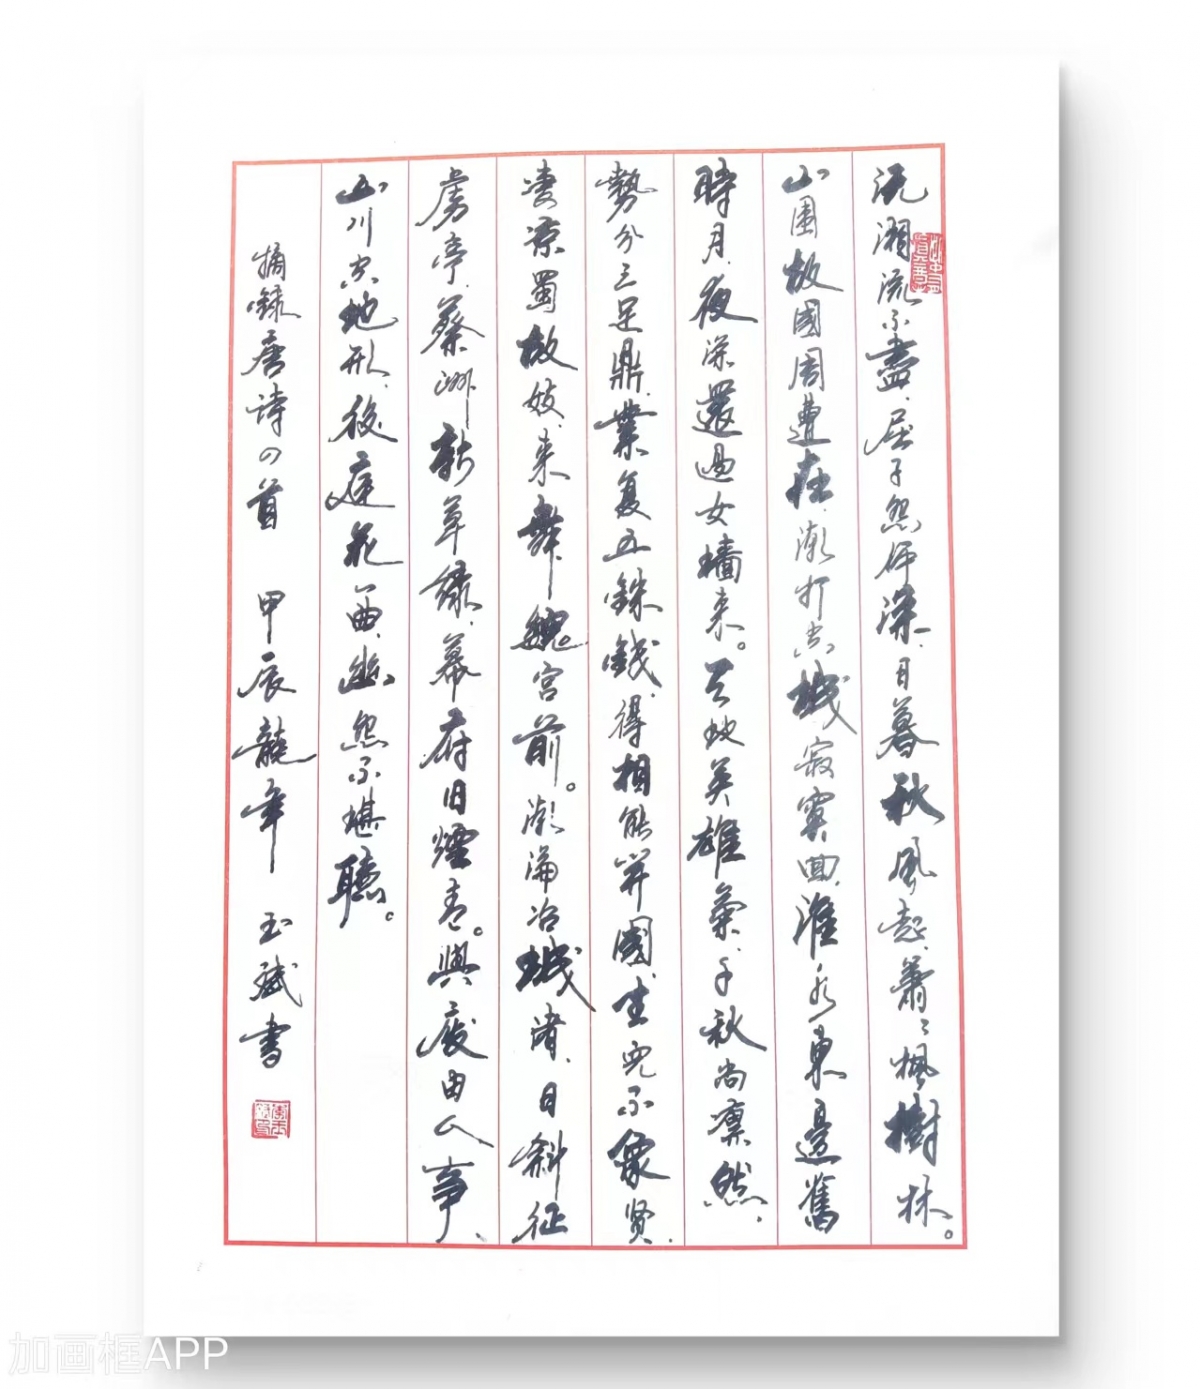 沅湘流不盡、屈子怨何深、日暮秋風起、蕭〻楓樹林。
山圍故國周遭在、潮打空城寂寞回、淮水東邊舊
時月、夜深還過女墻来。天地英雄氣、千秋尚凛然、
勢分三足鼎、業复五銖錢、得相能开國、生兒不象贤、
凄凉蜀故妓、来舞魏宫前。潮滿冶城渚、日斜征
虏亭、蔡洲新草绿、幕府旧煙青。興废由人事、
山川空地形、後庭花一曲、幽怨不堪聽。
摘録唐诗四首 甲辰龍年 玉斌書
加画框APP